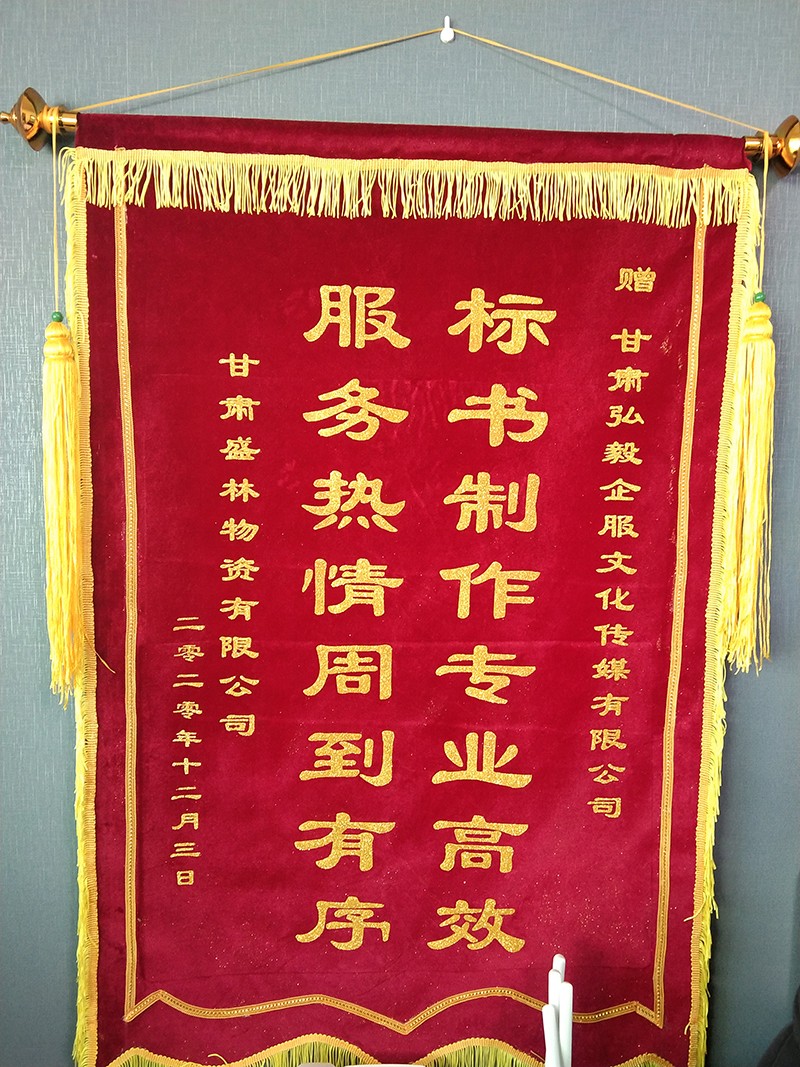 赠 甘肃弘毅企服文化传媒有限公司
标书制作专业高效
服务热情周到有序
甘肃盛林物资有限公司
二零二零年十二月三日